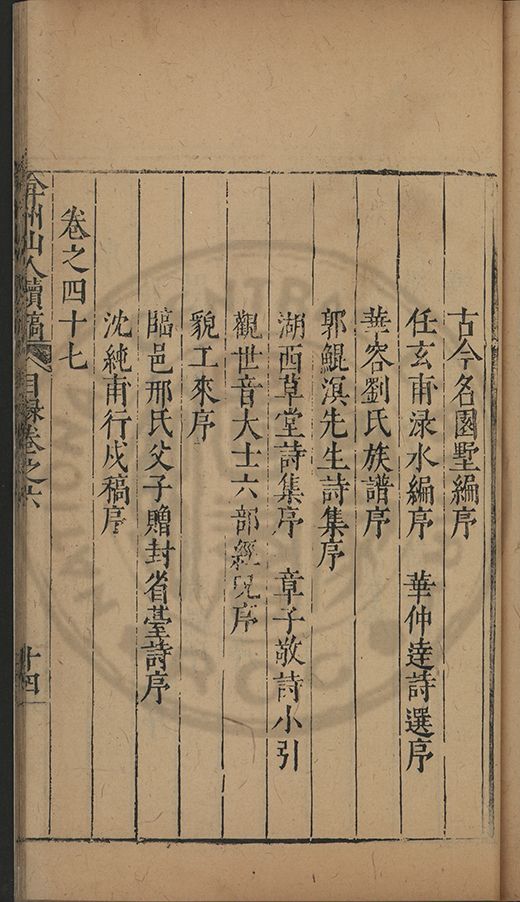 古今名園墅編序
任玄甫淥水編序　華仲達詩選序
華容劉氏族譜序
郭鯤溟先生詩集序
湖西草堂詩集序　章子敬詩小引
觀世音大士六部經呪序
貌工來序
臨邑邢氏父子贈封省臺詩序
沈純甫行戍稿序
卷之四十七
弇州山人續稿　目錄卷之六　十四